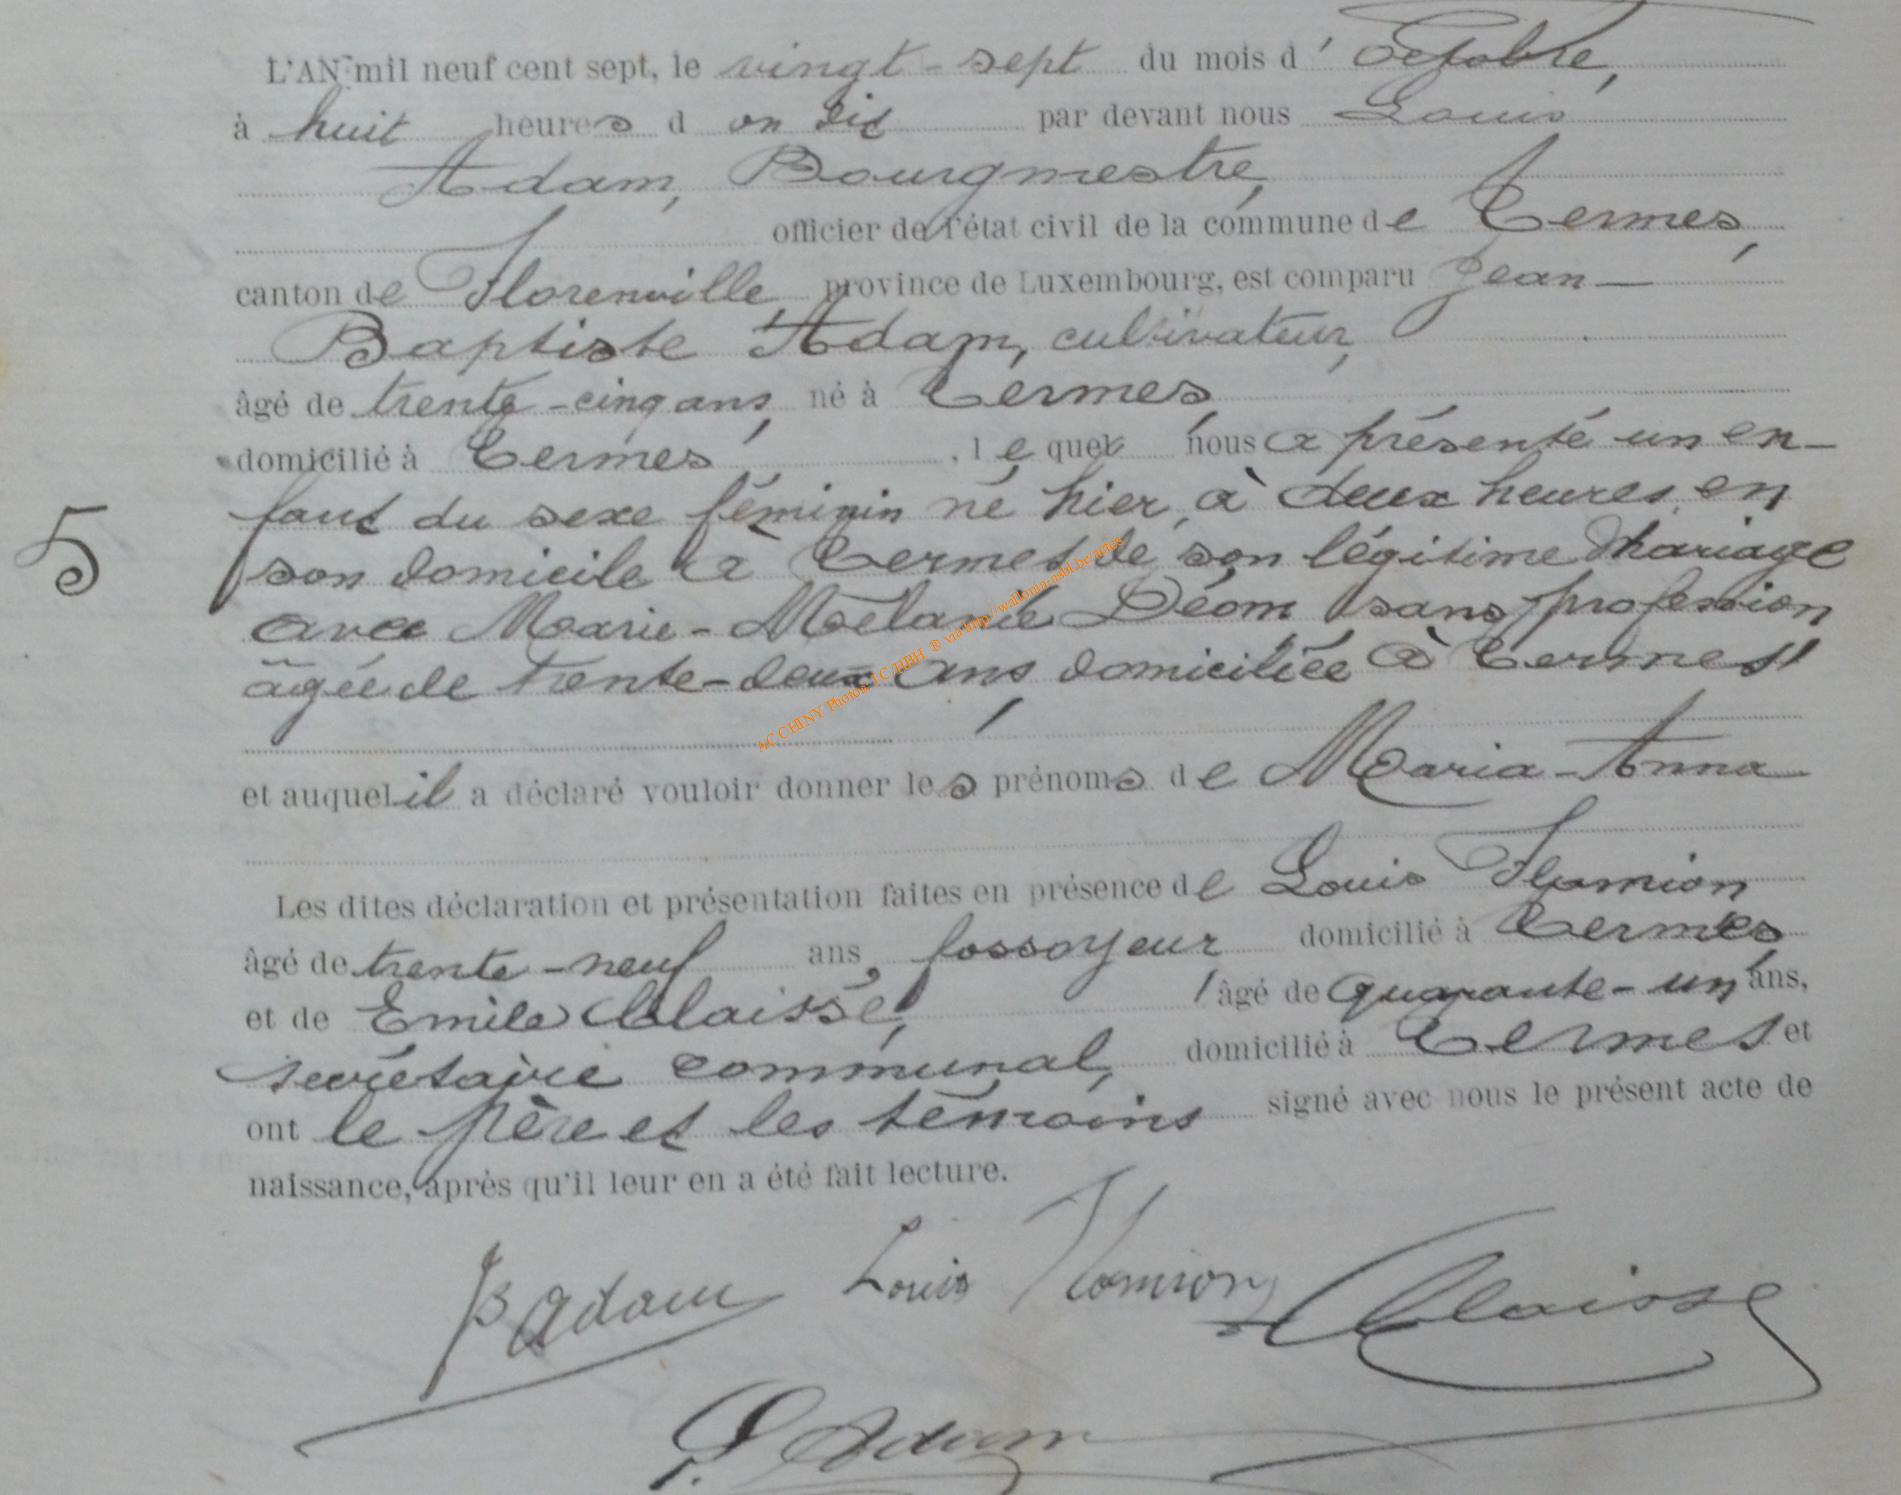 L'AN mil neuf cent sept, le vingt-sept du mois d' Octobre,
à huit heures d on dit par devant nous Louis
Adam, Bourgmestre,
officier de l'état civil de la commune de Termes,
canton de Florenville province de Luxembourg, est comparu Jean-
Baptiste Adam, cultivateur,
âgé de trente-cinq ans, né à Termes,
domicilié à Termes, lequel nous a présenté un en-
5
fant du sexe féminin né hier, à deux heures, en
son domicile à Termes de son légitime mariage
avec Marie-Mélanie Déom sans profession
âgée de trente-deux ans, domiciliée à Termes
AC CHINY Photos TC JJBH ® via http://wallonia-asbl.be/actes
et auquel il a déclaré vouloir donner les prénoms de Maria-Anna
Les dites déclaration et présentation faites en présence de Louis Flamion
âgé de trente-neuf ans, fossoyeur domicilié à Termes
et de Emile Claisse, âgé de quarante-un ans,
secrétaire communal, domicilié à Termes et
ont le père et les témoins signé avec nous le présent acte de
naissance, après qu'il leur en a été fait lecture.
JB Adam Louis Flamion Claisse
L. Adam